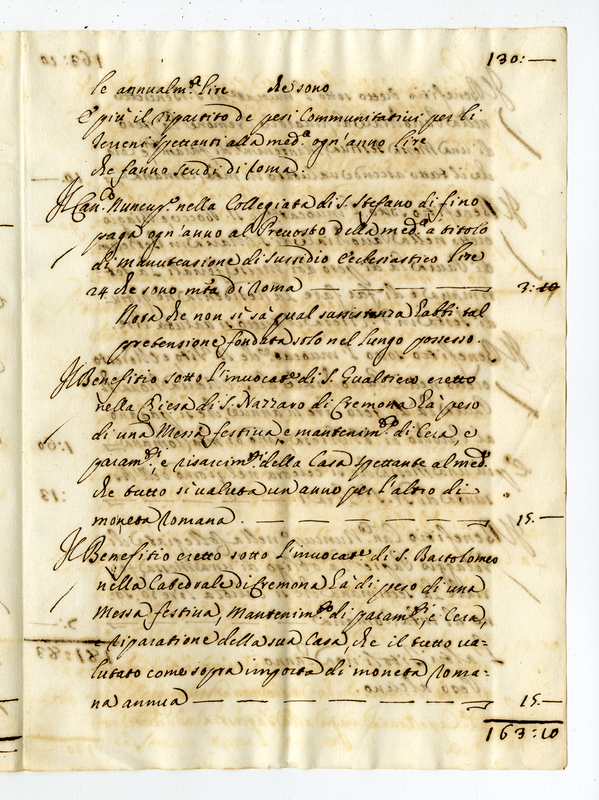 130: —
le annualm.te lire che sono
E più il ripartito de pesi Communitativi per li
terreni spettanti alla med.a ogn'anno lire
che fanno scudi di Roma:
Il Can.to Nuncup.o nella Collegiata di S. Stefano di fino
paga ogn'anno al Prevosto della med.a a titolo
di manutensione di sussidio Ecclesiastico lire
24 che sono m.ta di Roma — — — — 3: 10
Nota che non si sà qual sussistenza habbi tal
pretensione fondata solo nel lungo possesso.
Il Benefitio sotto l'invocat.e di S. Gualtiero eretto
nella Chiesa di S. Nazzaro di Cremona hà peso
di una Messa festiva, e mantenim.to di Cera, e
param.ti, e risarcim.ti della Casa spettante al med.o
che tutto si valuta un anno per l'altro di
moneta Romana. — — — — — — 15. —
Il Benefitio eretto sotto l'invocat.e di S. Bartolomeo
nella Catedrale di Cremona hà di peso di una
Messa festiva, Mantenim.to di param.ti, e Cera,
e riparatione della sua Casa, che il tutto va=
lutato come sopra importa di moneta Roma=
na annua — — — — — — — 15. —
163: 10